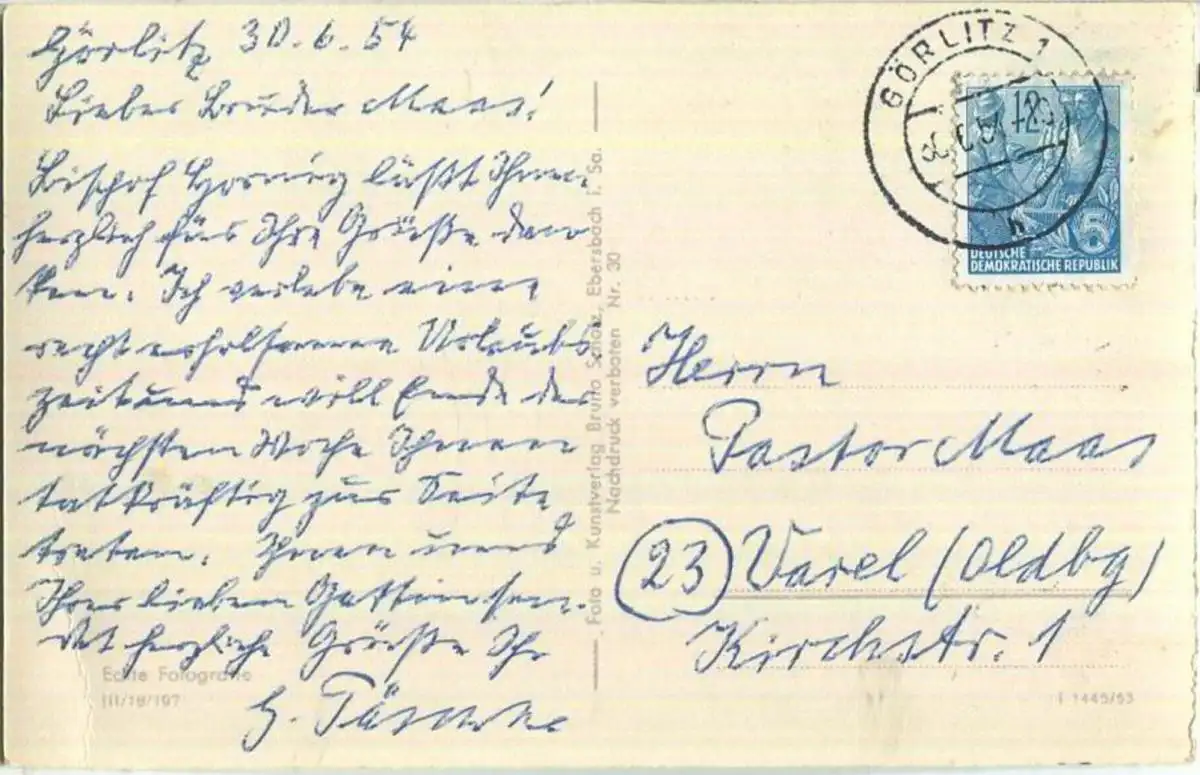 Görlitz 30.6.54
Lieber Bruder Maas!
Bischof Hornig läßt Ihnen
herzlich für Ihre Grüße dan
ken. Ich verlebe eine
recht erholsame Urlaubs
zeit und will Ende der
nächsten Woche Ihnen
tatkräftig zur Seite
treten. Ihnen und
Ihrer lieben Gattin sen
det herzliche Grüße Ihr
Echte Fotografie
III/18/197
Foto u. Kunstverlag Bruno Scholz, Ebersbach i. Sa.
Nachdruck verboten Nr. 30
GÖRLITZ 1
h
5
DEUTSCHE
DEMOKRATISCHE REPUBLIK
Herrn
Pastor Maas
23 Varel (Oldbg)
Kirchstr. 1
1445/53